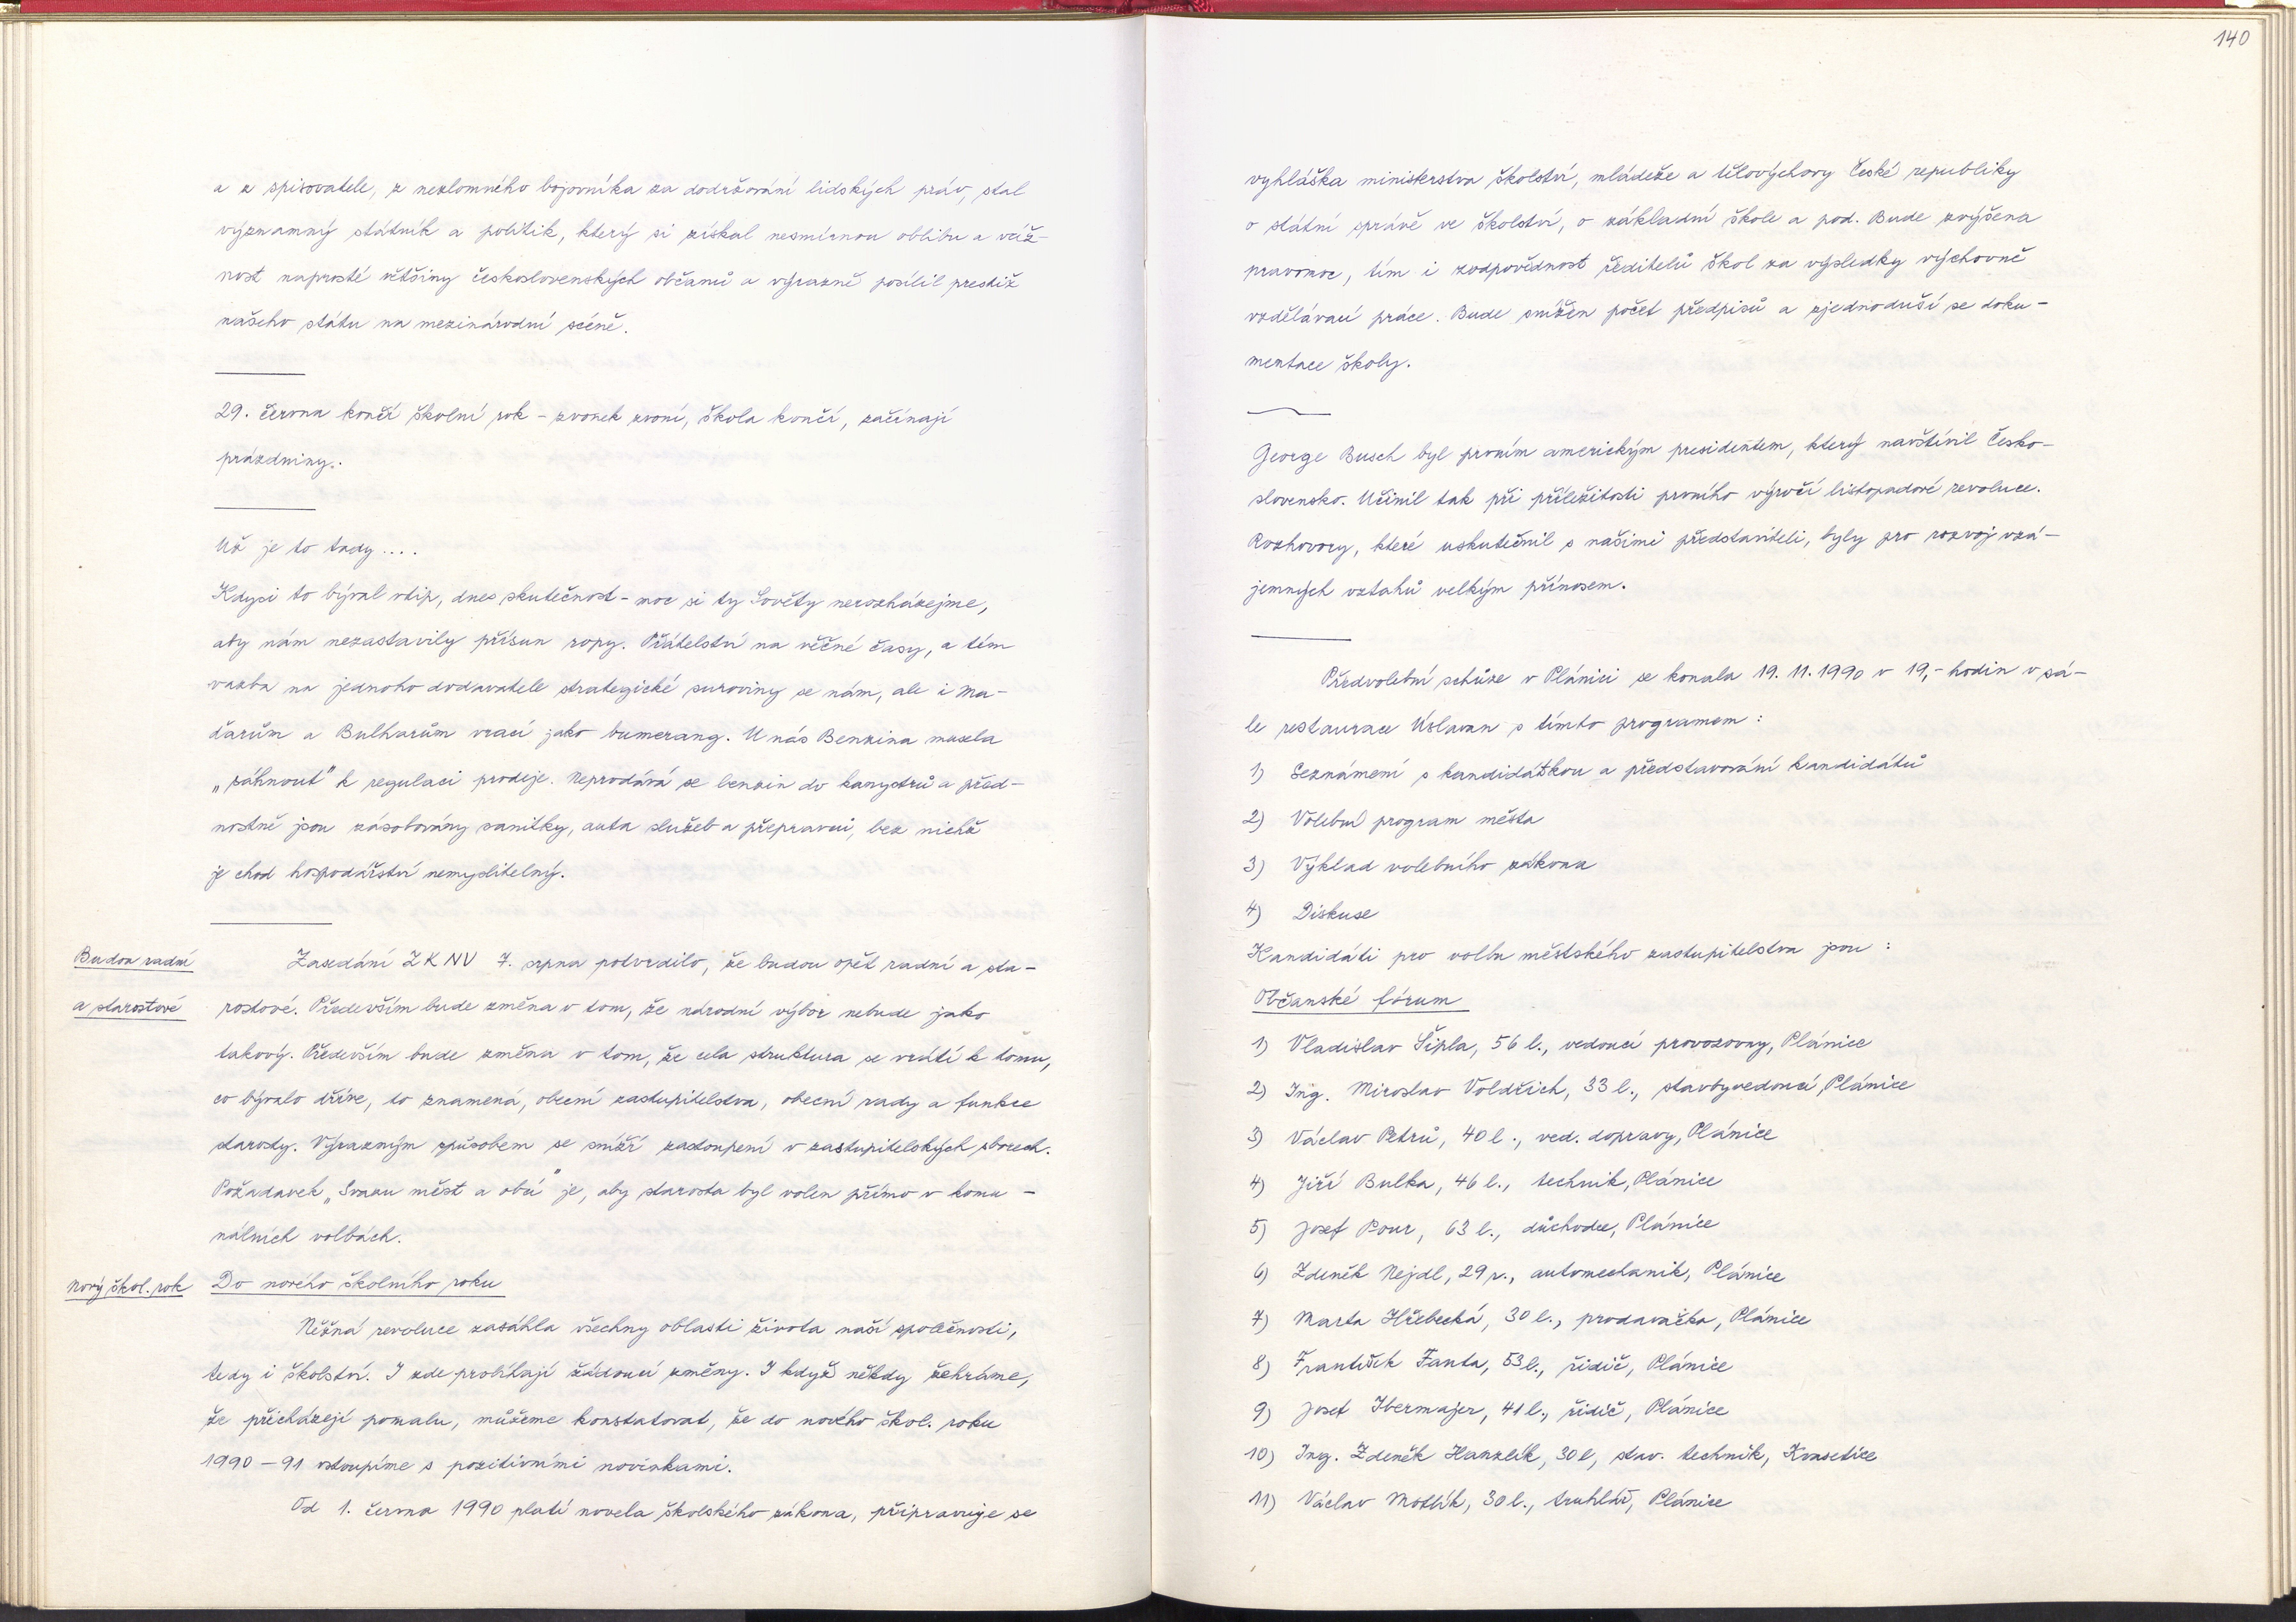 140
a z spisovatele, z nezlomného bojovníka za dodržování lidských práv, stal
významný státník a politik, který si získal nesmírnou oblibu a váž-
nost naprosté většiny československých občanů a výrazně posílil prestiž
našeho státu na mezinárodní scéně.
29. června končí školní rok - zvonek zvoní, škola končí, začínají
prázdniny.
Už je to tady....
Kdysi to býval vtip, dnes skutečnost - moc si ty Sověty nerozházejme,
aby nám nezastavily přísun ropy. Přátelství na věčné časy, a tím
vazba na jednoho dodavatele strategické suroviny se nám, ale i Ma-
ďarům a Bulharům vrací jako bumerang. U nás Benzina musela
„sáhnout" k regulaci prodeje. Neprodává se benzin do kanystrů a před-
nostně jsou zásobovány sanitky, auta služeb a přepravci, bez nichž
je chod hospodářství nemyslitelný.
Budou radní
a starostové
Zasedání ZKNV 7. srpna potvrdilo, že budou opět radní a sta-
rostové. Především bude změna v tom, že národní výbor nebude jako
takový. Především bude změna v tom, že cela struktura se vrátí k tomu,
co bývalo dříve, to znamená, obecní zastupitelstva, obecní rady a funkce
starosty. Výrazným způsobem se sníží zastoupení v zastupitelských sborech.
Požadavek „Svazu měst a obcí" je, aby starosta byl volen přímo v komu-
nálních volbách.
Nový škol. rok
Do nového školního roku
Něžná revoluce zasáhla všechny oblasti života naší společnosti,
tedy i školství. I zde probíhají žádoucí změny. I když někdy žehráme,
že přicházejí pomalu, můžeme konstatovat, že do nového škol. roku
1990-91 vstoupíme s pozitivními novinkami.
Od 1. června 1990 platí novela školského zákona, připravuje se
vyhláška ministerstva školství, mládeže a tělovýchovy České republiky
o státní správě ve školství, o základní škole a pod. Bude zvýšena
pravomoc, tím i zodpovědnost ředitelů škol za výsledky výchovně
vzdělávací práce. Bude snížen počet předpisů a zjednoduší se doku-
mentace školy.
George Busch byl prvním americkým presidentem, který navštívil Česko-
slovensko. Učinil tak při příležitosti prvního výročí listopadové revoluce.
Rozhovory, které uskutečnil s našimi představiteli, byly pro rozvoj vzá-
jemných vztahů velkým přínosem.
Předvolební schůze v Plánici se konala 19. 11. 1990 v 19,- hodin v sá-
le restaurace Úslavan s tímto programem:
1) Seznámení s kandidátkou a představování kandidátů
2) Volební program města
3) Výklad volebního zákona
4) Diskuse
Kandidáti pro volbu městského zastupitelstva jsou:
Občanské fórum
1) Vladislav Šipla, 56 l., vedoucí provozovny, Plánice
2) Ing. Miroslav Voldřich, 33 l., stavbyvedoucí, Plánice
3) Václav Petrů, 40 l., ved. dopravy, Plánice
4) Jiří Bulka, 46 l., technik, Plánice
5) Josef Pour, 63 l., důchodce, Plánice
6) Zdeněk Nejdl, 29 r., automechanik, Plánice
7) Marta Hřebecká, 30 l., prodavačka, Plánice
8) František Fanta, 53 l., řidič, Plánice
9) Josef Ibermajer, 41 l., řidič, Plánice
10) Ing. Zdeněk Hanzlík, 30 l, stav. technik, Kvasetice
11) Václav Motlík, 30 l., truhlář, Plánice